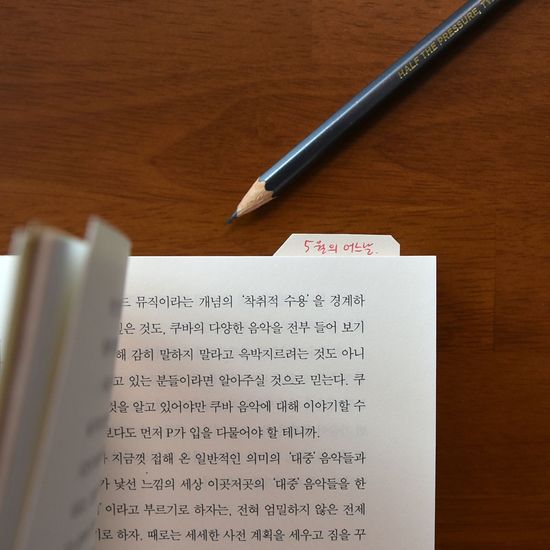 HALF THE PRESSURE,
5월의 어느날.
뮤직이라는 개념의 '착취적 수용'을 경계하
은 것도, 쿠바의 다양한 음악을 전부 들어 보기
해 감히 말하지 말라고 윽박지르려는 것도 아니
고 있는 분들이라면 알아주실 것으로 믿는다. 쿠
것을 알고 있어야만 쿠바 음악에 대해 이야기할 수
보다도 먼저 P가 입을 다물어야 할 테니까.
지금껏 접해 온 일반적인 의미의 '대중' 음악들과
가 낯선 느낌의 세상 이곳저곳의 '대중' 음악들을 한
이라고 부르기로 하자는, 전혀 엄밀하지 않은 전제
기로 하자. 때로는 세세한 사전 계획을 세우고 짐을 꾸